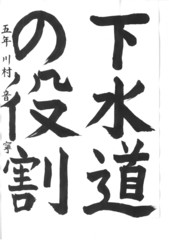 下水道
の役割
五年 川村 音寧